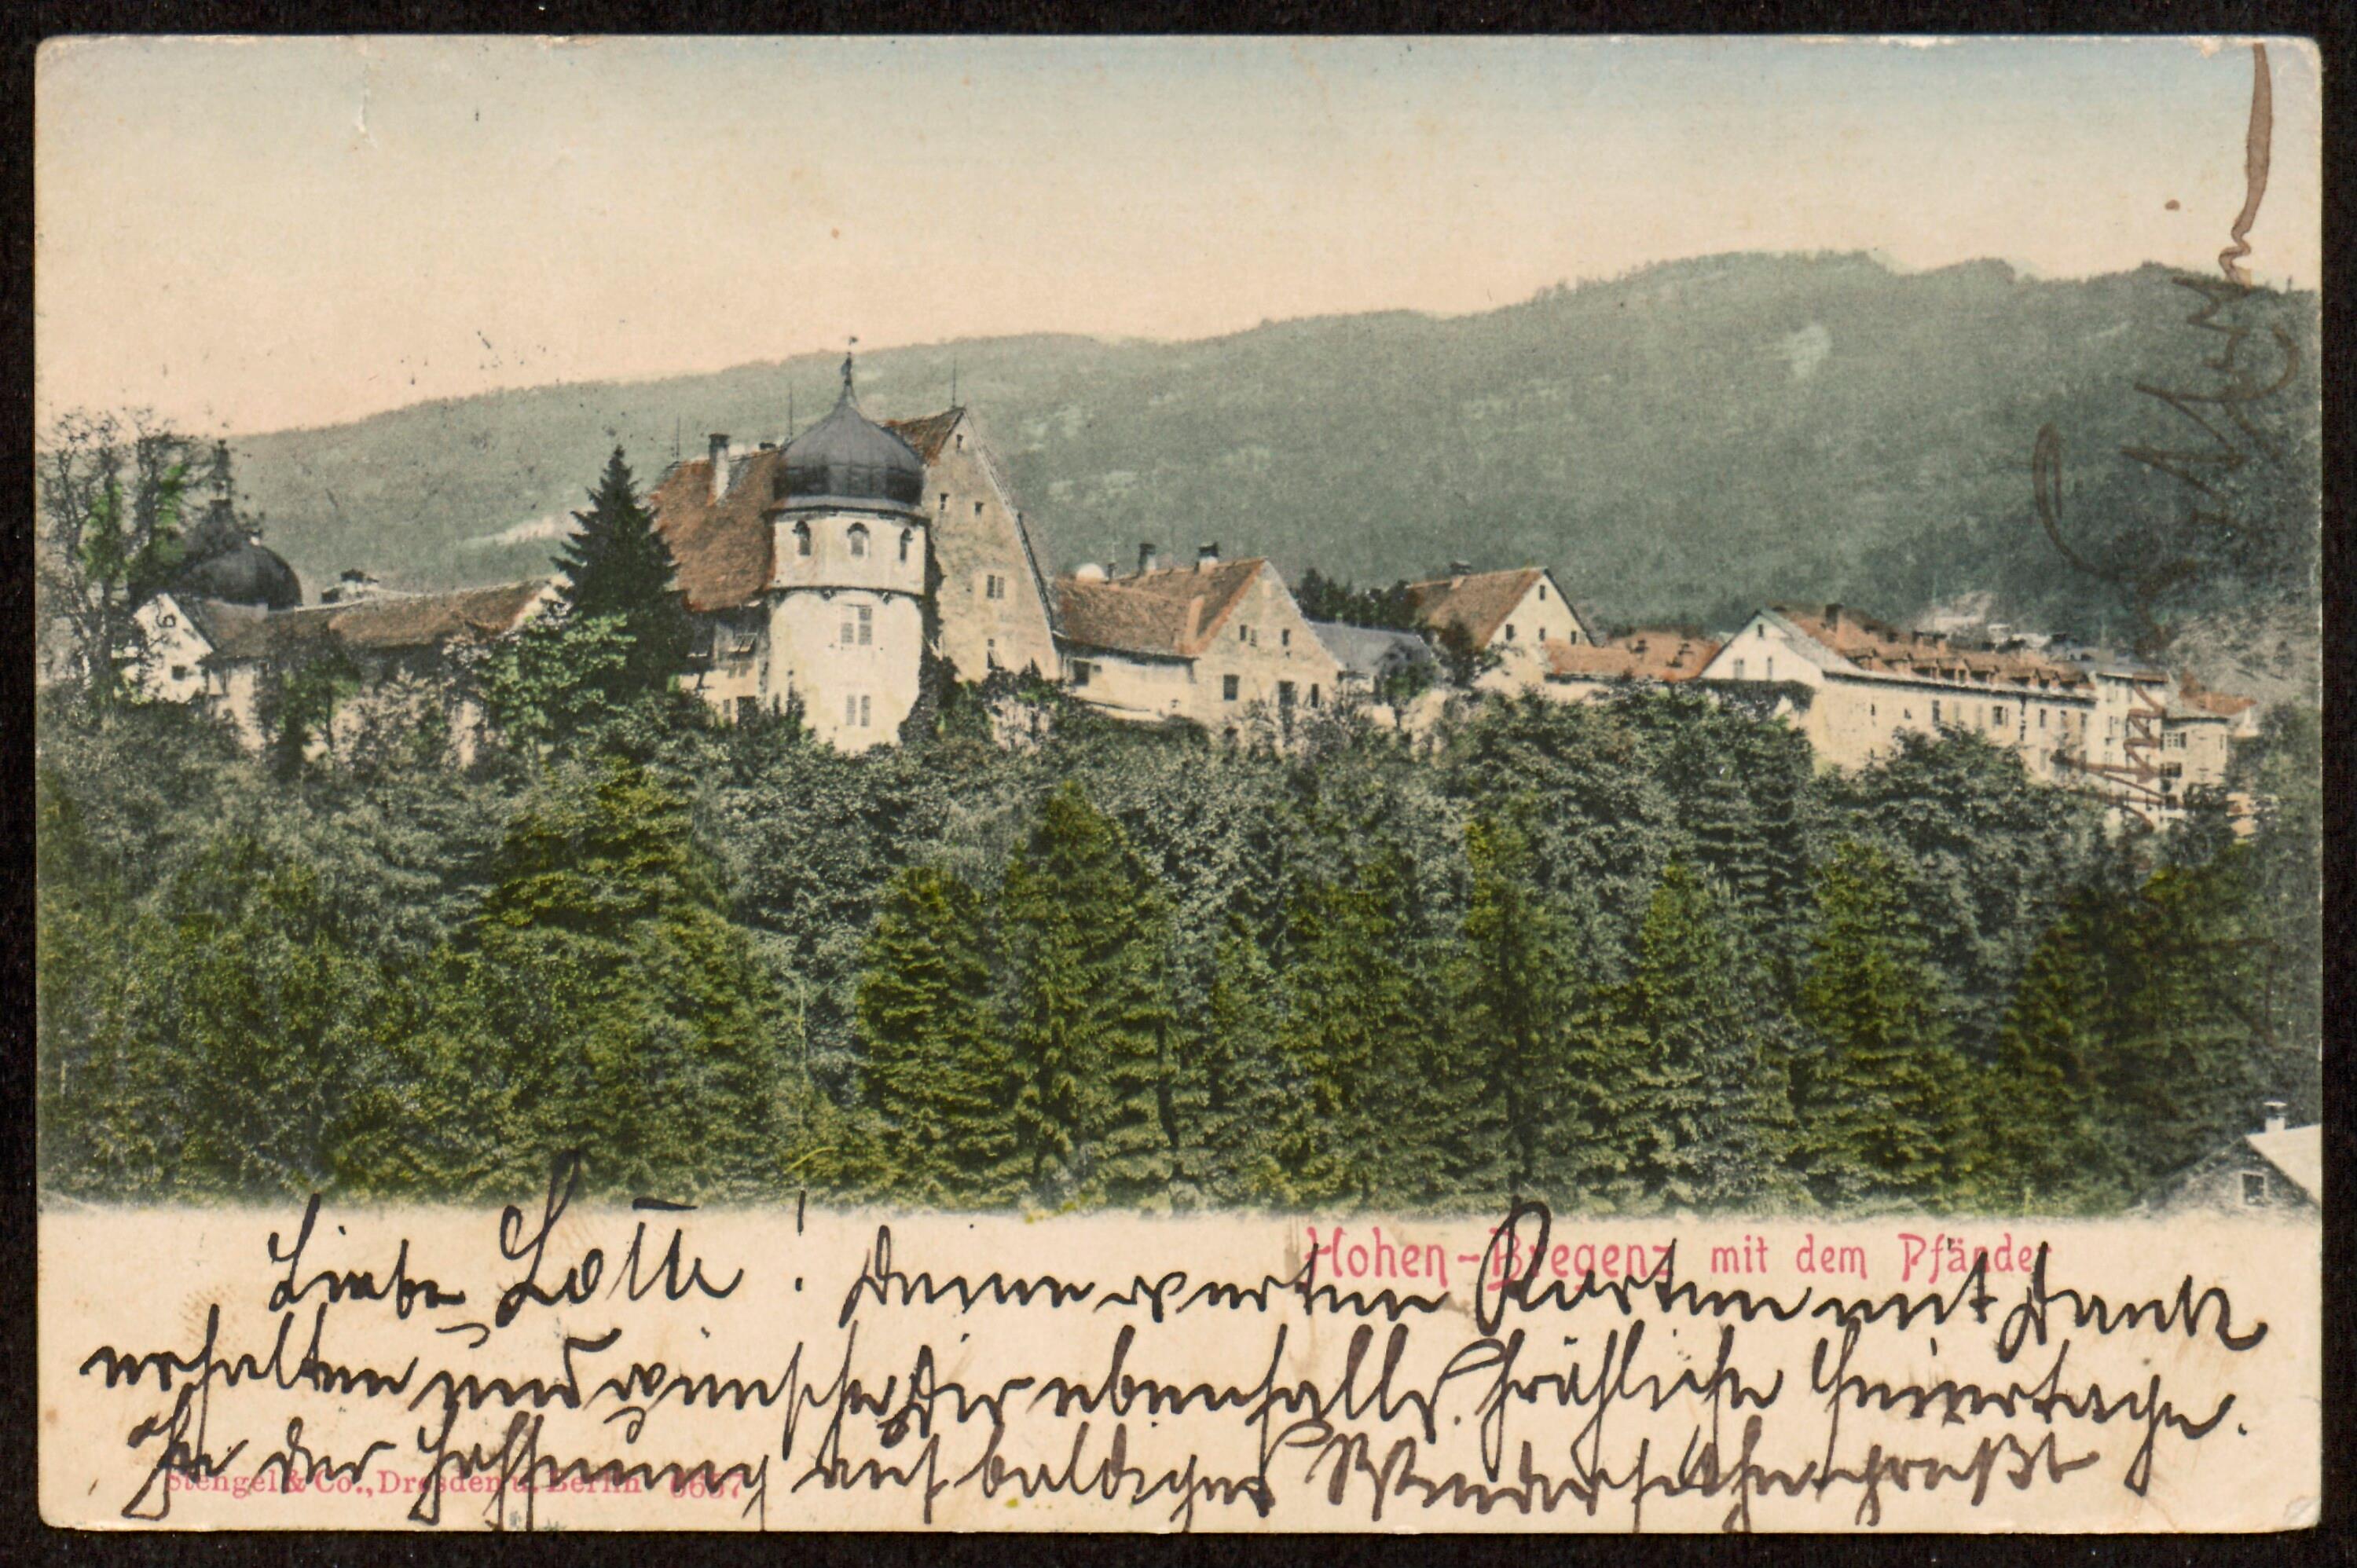 Hohen-Bregenz mit dem Pfänder
Liebe Lotte! Deine werten Karten mit Dank
erhalten und wünsche Dir ebenfalls fröhliche Feiertage.
In der Hoffnung auf baldiges Wiedersehen grüßt
Stengel & Co., Dresden u. Berlin 5657